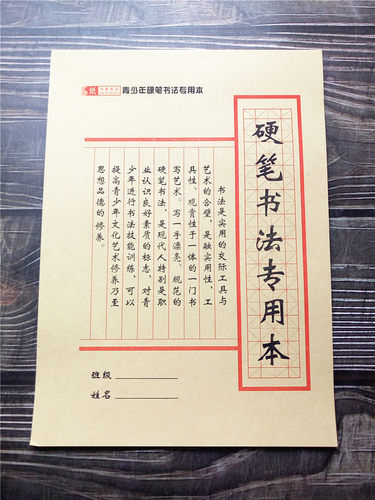 纸
青少年硬笔书法专用本
硬笔书法专用本
书法是实用的交际工具与
艺术的合壁，是融实用性、工
具性、观赏性于一体的一门书
写艺术。写一手漂亮、规范的
硬笔书法，是现代人特别是职
业认识良好素质的标志，对青
少年进行书法技能训练，可以
提高青少年文化艺术修养乃至
思想品德的修养。
班级
姓名